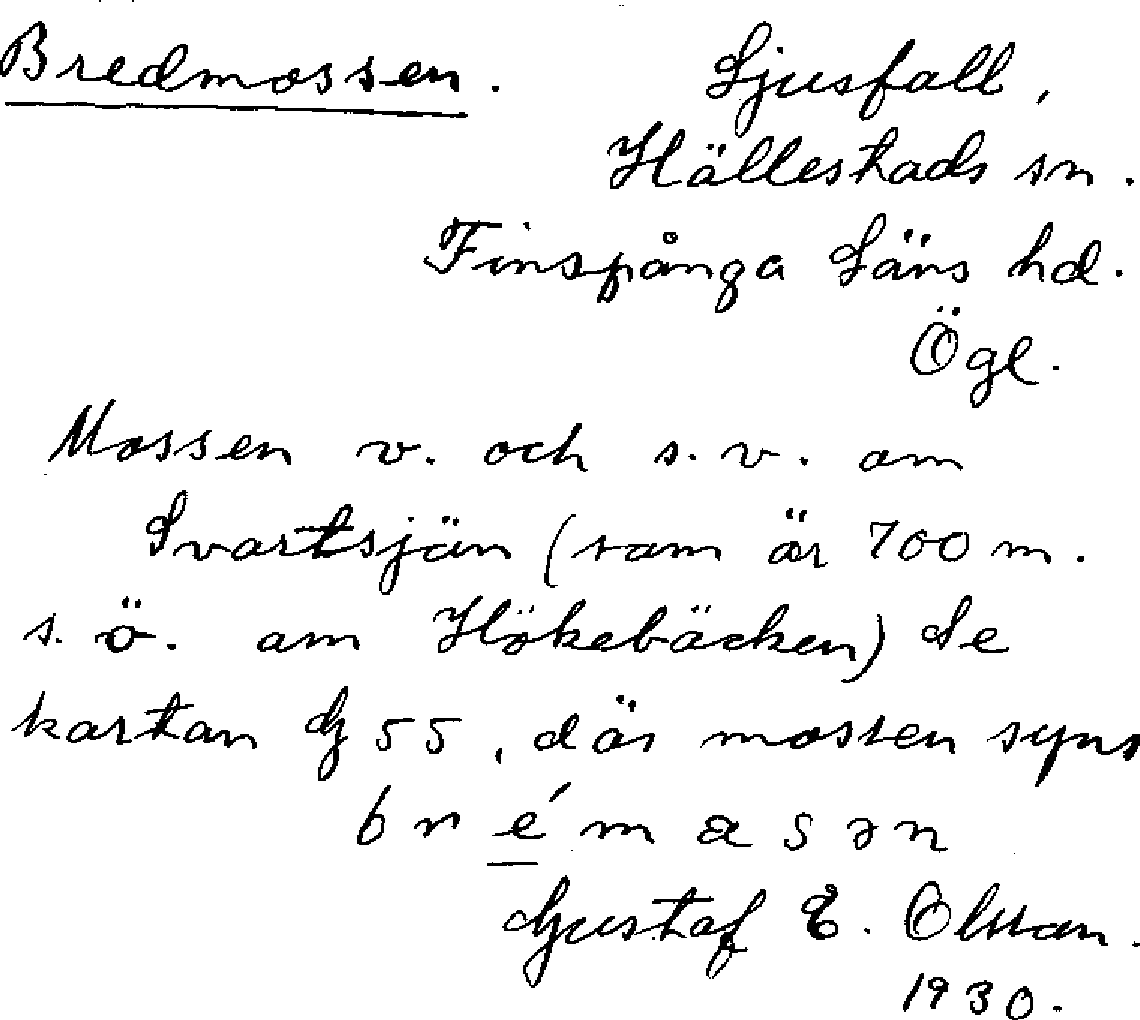 Bredmossen. Ljusfall,
Hällestads sn.
Finspånga Läns hd.
Ögl.
Mossen v. och s.v. om
Svartsjön (som är 700 m.
s.ö. om Hökebäcken) Se
kartan G 55, där mossen syns
b r é m a s ə n
Gustaf E. Olsson.
1930.